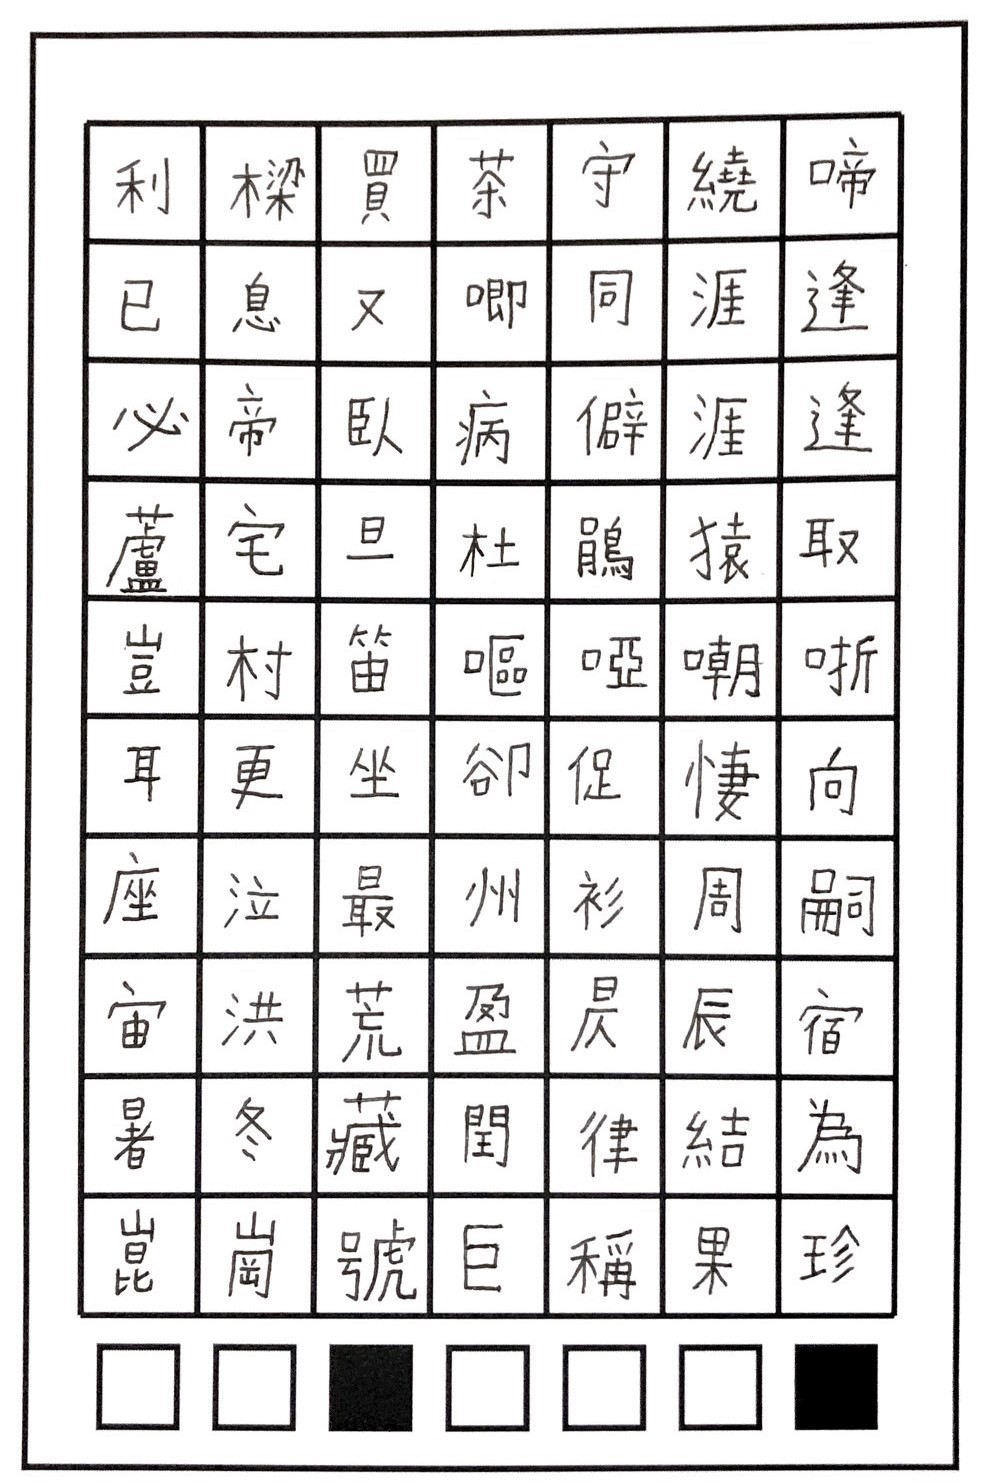 利樑買茶守繞啼
已息又唧同涯逢
必帝臥病僻涯逢
蘆宅旦杜鵑猿取
豈村笛嘔啞嘲哳
耳更坐卻促悽向
座泣最州衫周嗣
宙洪荒盈昃辰宿
暑冬藏閏律結為
崑崗號巨稱果珍